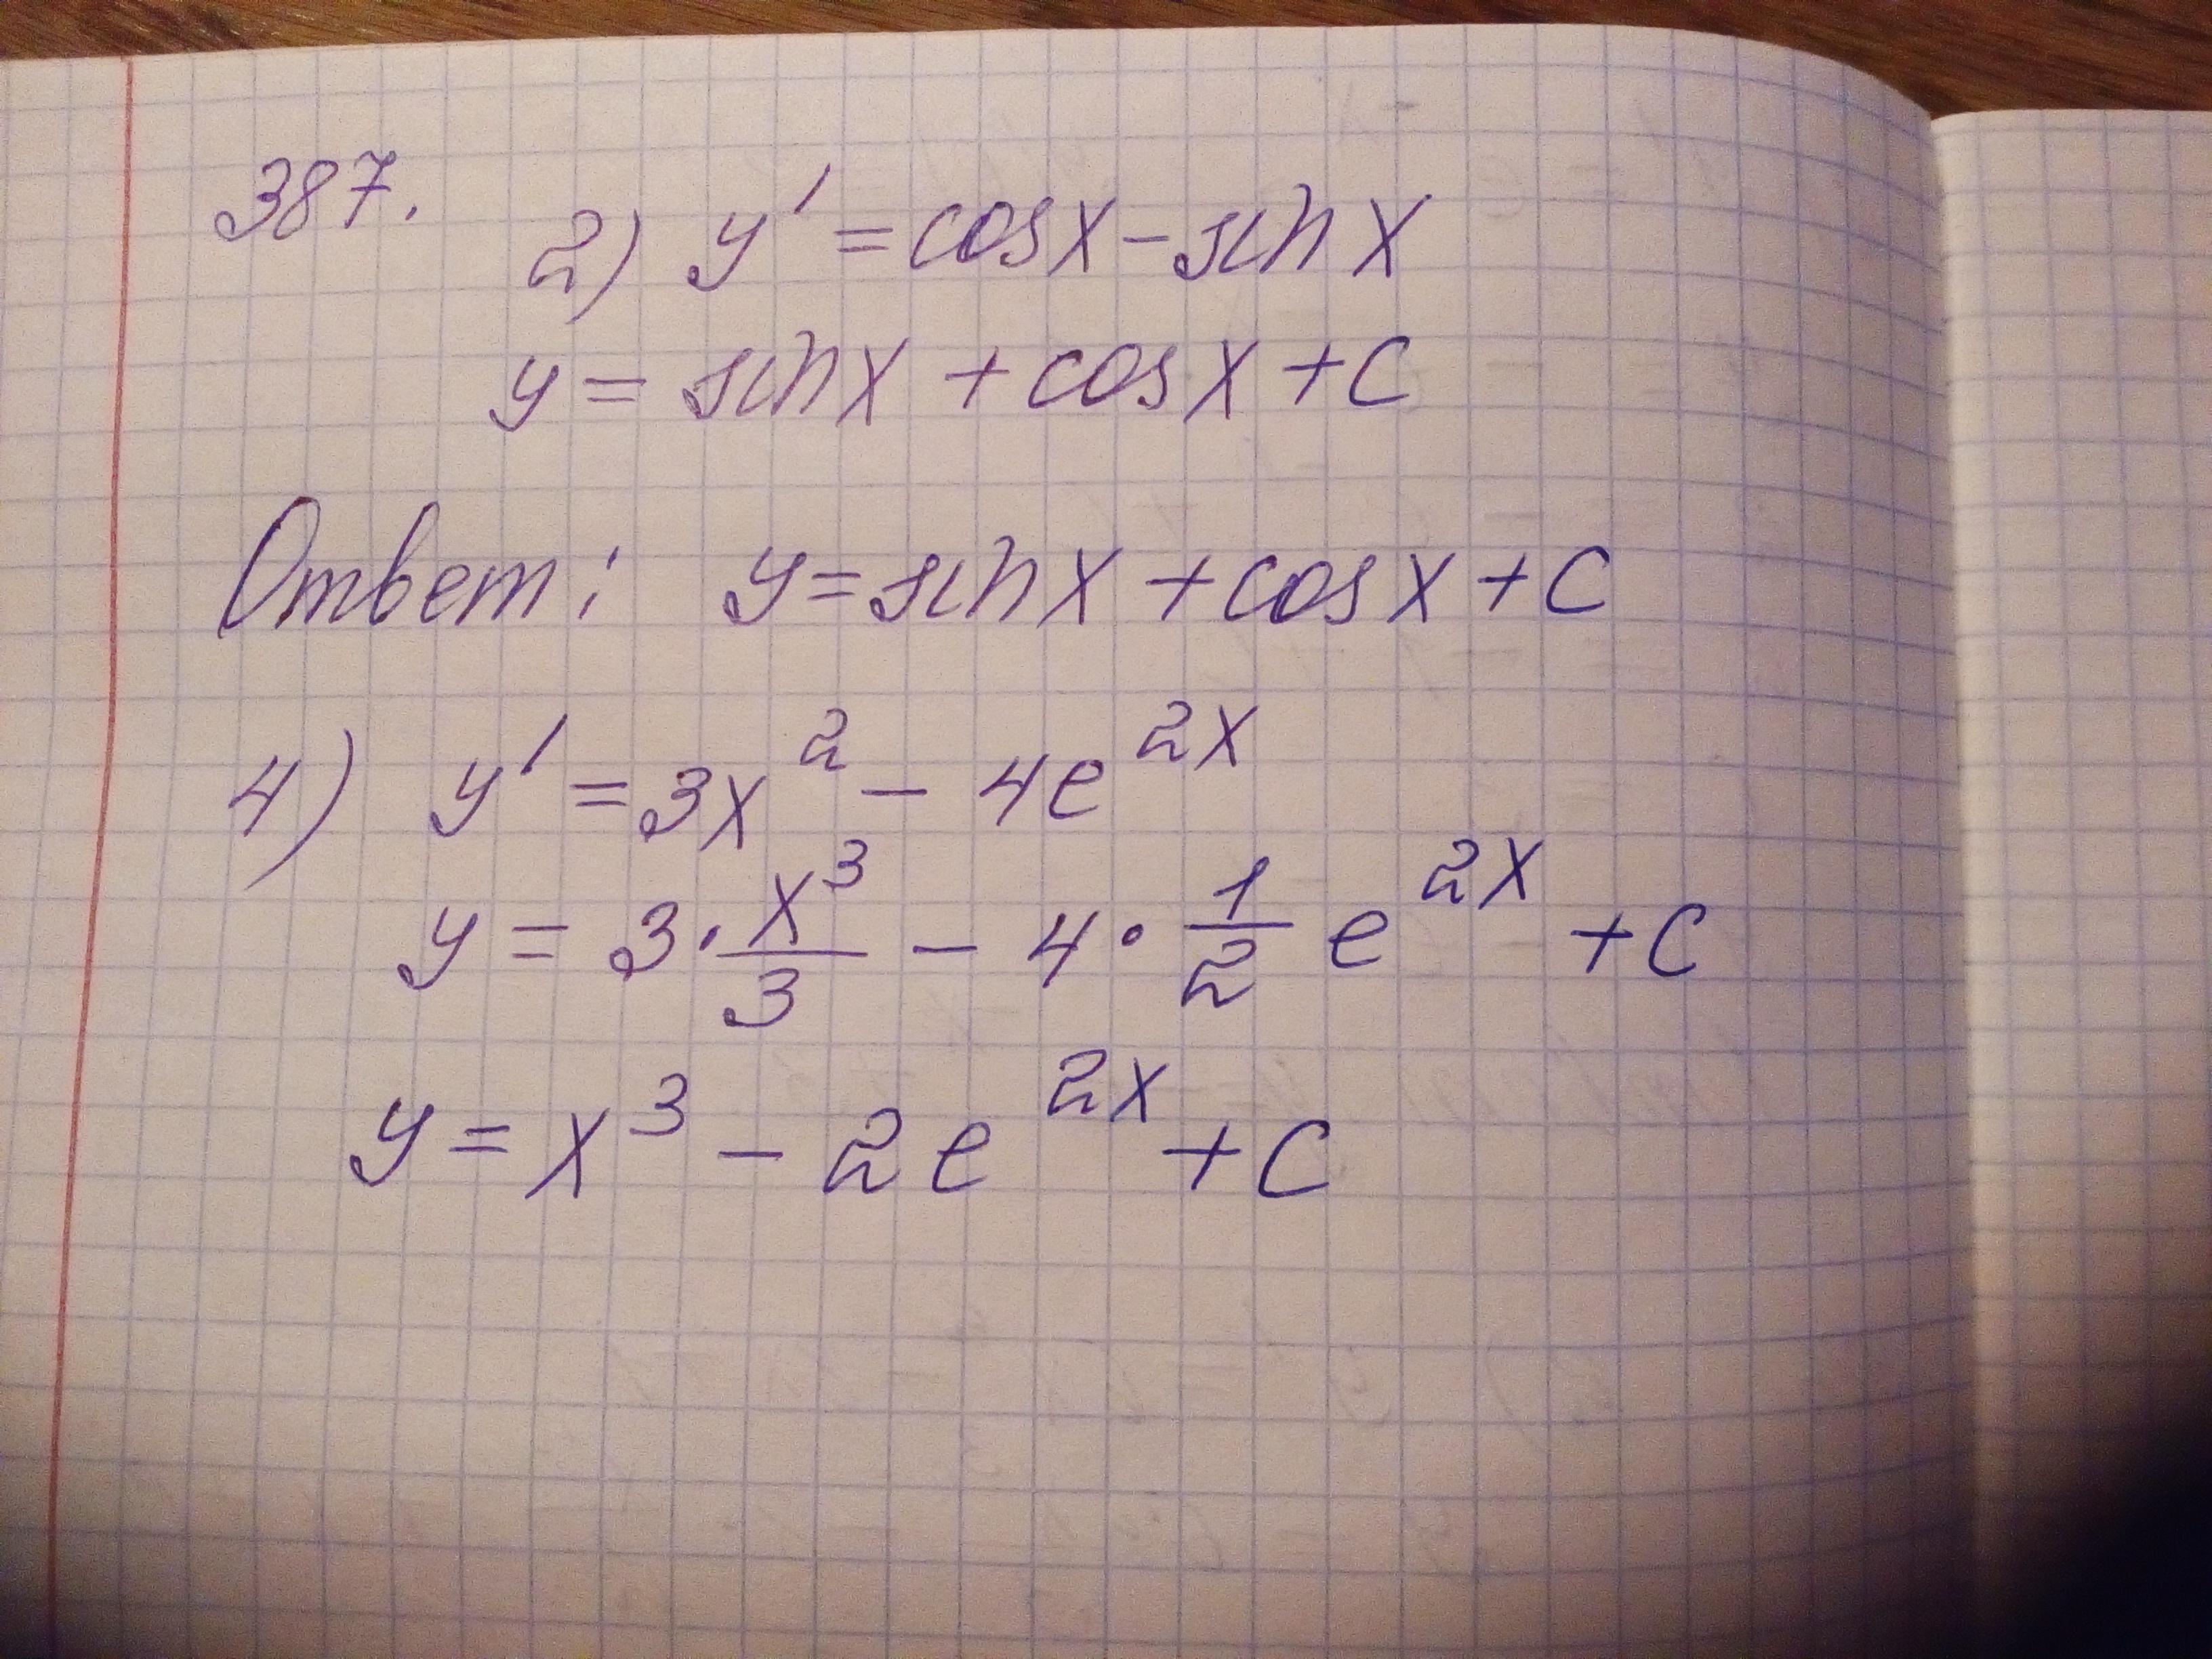 387.
2) y' = cosx - sin x
y = sinx + cosx + C
Ответ: y = sinx + cosx + C
4) y' = 3x² - 4e^{2x}
y = 3 · \frac{x³}{3} - 4 · \frac{1}{2} e^{2x} + C
y = x³ - 2e^{2x} + C